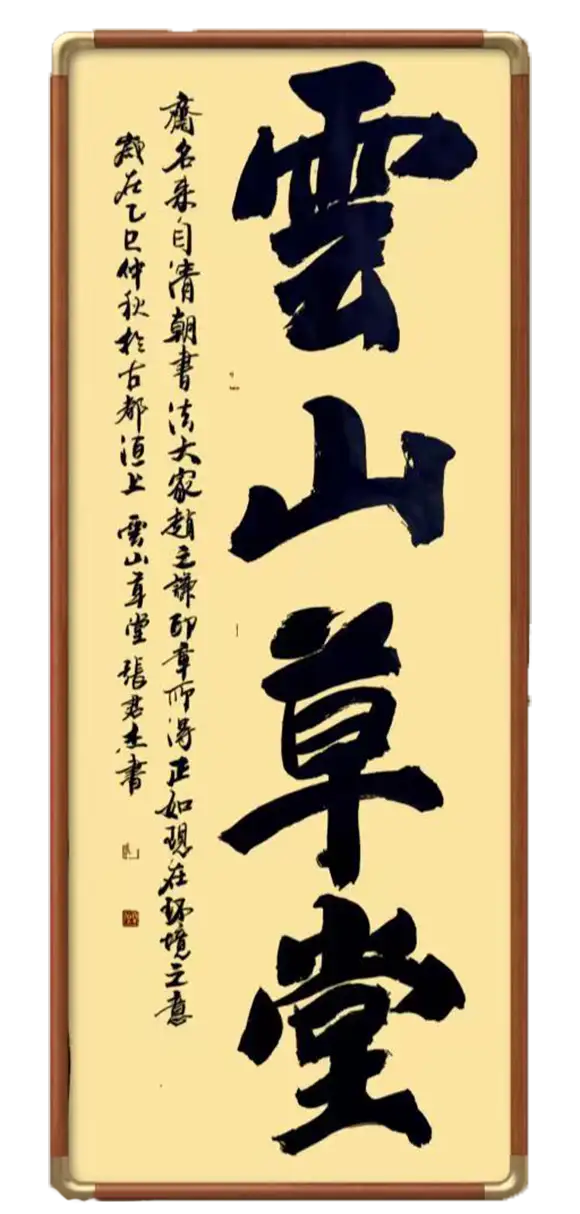 雲山草堂
齋名来自清朝書法大家趙之謙印章所得正如現在环境之意
歲在乙巳仲秋於古都洹上 雲山草堂 張君杰書